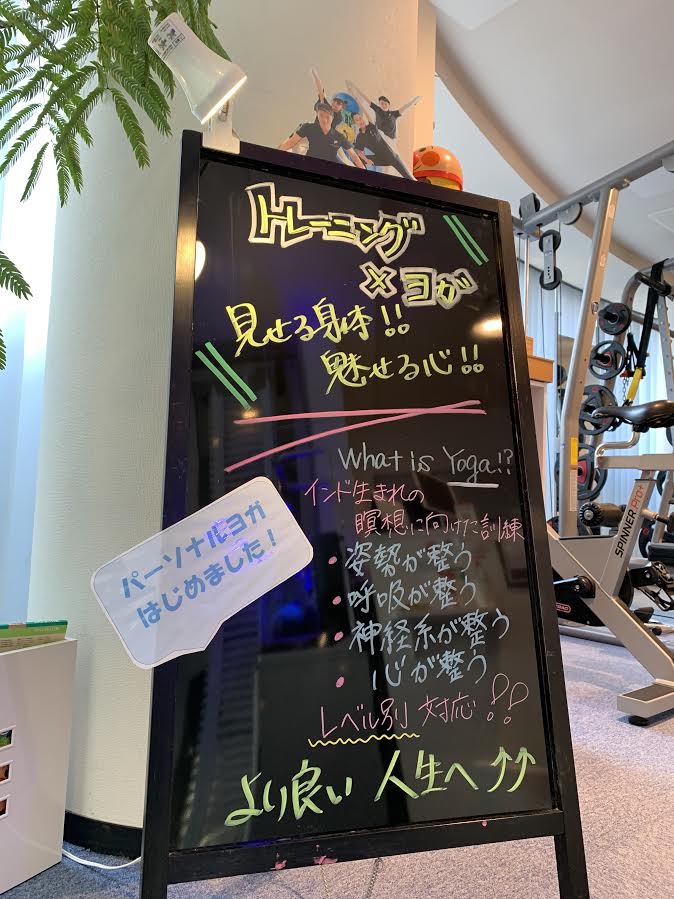 トレーニング
×ヨガ
見せる身体!!
魅せる心!!
What is Yoga!?
インド生まれの
瞑想に向けた訓練
・姿勢が整う
・呼吸が整う
・神経系が整う
・心が整う
レベル別 対応!!
より良い 人生へ↑↑
パーソナルヨガ
はじめました!
SPINNER Pro+